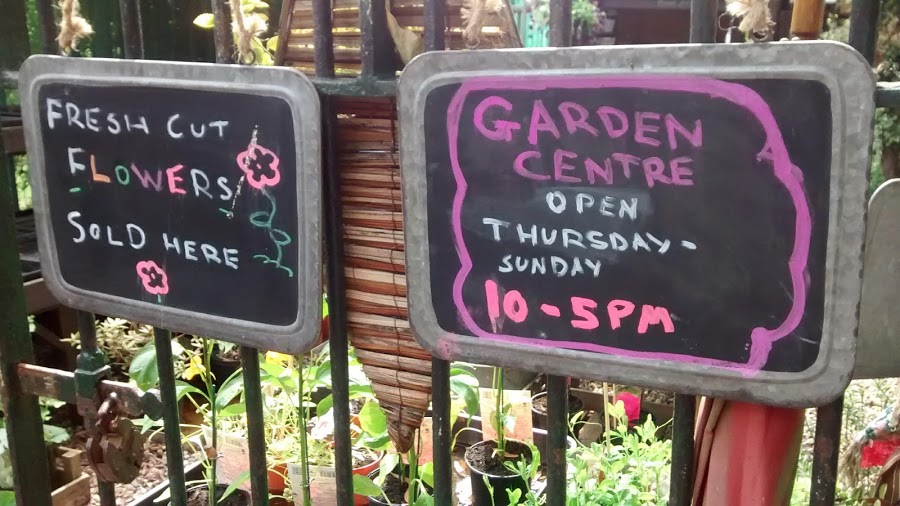 FRESH CUT
FLOWERS
SOLD HERE
GARDEN
CENTRE
OPEN
THURSDAY-
SUNDAY
10-5PM